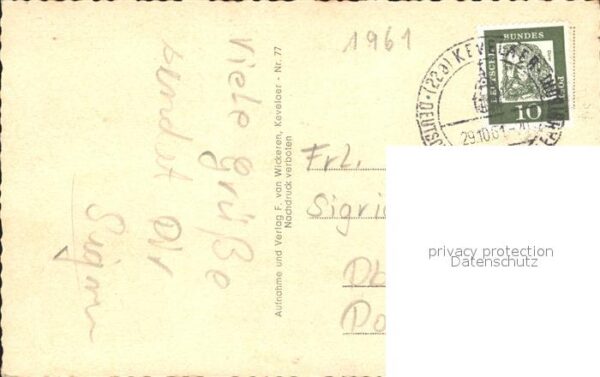 1961
Viele Grüße
sendet Dir
Aufnahme und Verlag F. van Wickeren, Kevelaer - Nr. 77
Nachdruck verboten
DEUTSCHE
BUNDES
POST
10
(22a) KEVELAER
29.10.61
Frl.
Sigri
privacy protection
Datenschutz